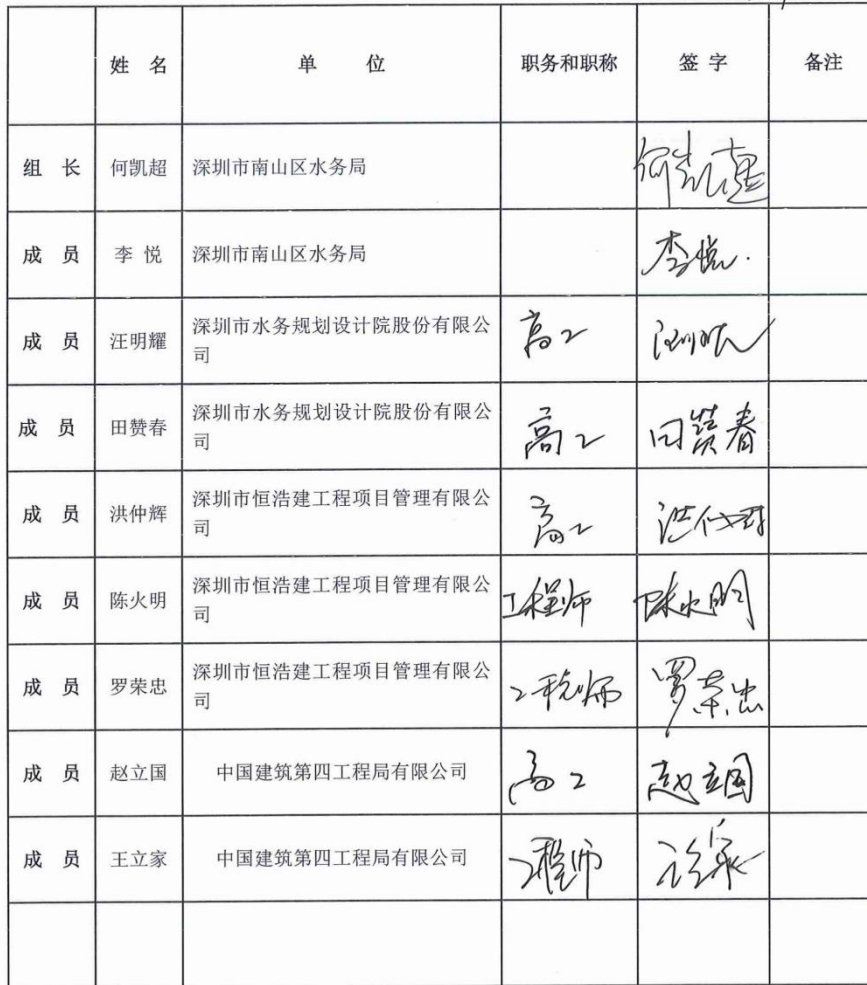 姓 名 单 位 职务和职称 签 字 备注
组 长 何凯超 深圳市南山区水务局 何凯超
成 员 李 悦 深圳市南山区水务局 李悦.
成 员 汪明耀 深圳市水务规划设计院股份有限公
司 高工
成 员 田赞春 深圳市水务规划设计院股份有限公
司 高工 田赞春
成 员 洪仲辉 深圳市恒浩建工程项目管理有限公
司 高工 洪仲辉
成 员 陈火明 深圳市恒浩建工程项目管理有限公
司 工程师 陈火明
成 员 罗荣忠 深圳市恒浩建工程项目管理有限公
司 工程师 罗荣忠
成 员 赵立国 中国建筑第四工程局有限公司 高工 赵立国
成 员 王立家 中国建筑第四工程局有限公司 工程师 王立家